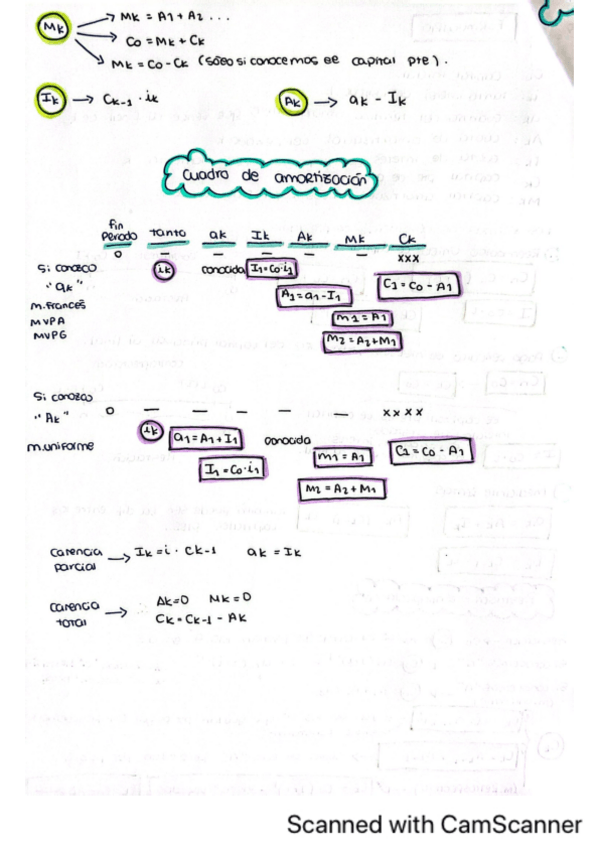 Mk → Mk = A1 + A2 ...
Co = Mk + Ck
Mk = Co - Ck (sólo si conocemos el capital pte).
Ik → Ck-1 · ik
Ak → ak - Ik
Cuadro de amortización
fin periodo tanto ak Ik Ak Mk Ck
0 — — — — — xxx
Si conozco "ak" ik conocida I1 = Co·i1
A1 = a1 - I1 C1 = Co - A1
m. Francés
MVPA m1 = A1
MVPG M2 = A2 + M1
Si conozco
"Ak" 0 — — — — — xxxx
m.uniforme ik a1 = A1 + I1 conocida m1 = A1 C1 = Co - A1
I1 = Co·i1
M2 = A2 + M1
Carencia parcial → Ik = i · Ck-1 ak = Ik
Carencia total → Ak=0 Mk=0
Ck = Ck-1 - Ak
Scanned with CamScanner